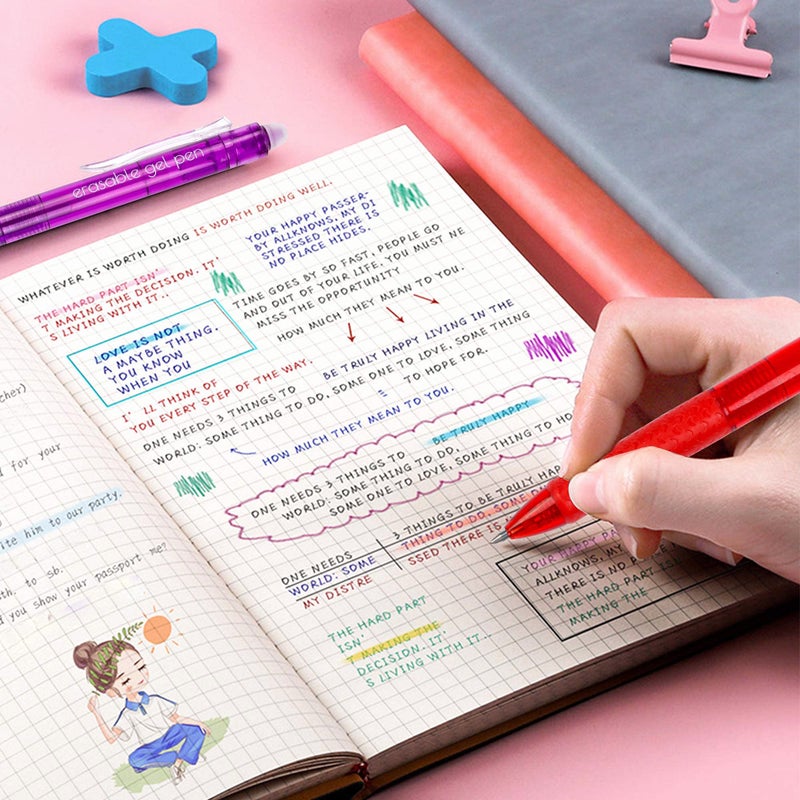 erasable gel pen
WHATEVER IS WORTH DOING IS WORTH DOING WELL.
THE HARD PART ISN'
T MAKING THE DECISION. IT'
S LIVING WITH IT..
YOUR HAPPY PASSER-
BY ALLKNOWS, MY DI
STRESSED THERE IS
NO PLACE HIDES.
LOVE IS NOT
A MAYBE THING.
YOU KNOW
WHEN YOU
TIME GOES BY SO FAST, PEOPLE GO
AND OUT OF YOUR LIFE. YOU MUST NE
MISS THE OPPORTUNITY
HOW MUCH THEY MEAN TO YOU.
I' LL THINK OF
YOU EVERY STEP OF THE WAY.
BE TRULY HAPPY LIVING IN THE
ONE NEEDS 3 THINGS TO
WORLD: SOME THING TO DO, SOME ONE TO LOVE, SOME THING
TO HOPE FOR.
HOW MUCH THEY MEAN TO YOU.
BE TRULY HAPPY
ONE NEEDS 3 THINGS TO
WORLD: SOME THING TO DO,
SOME ONE TO LOVE, SOME THING TO HO
3 THINGS TO BE TRULY HAP
ONE NEEDS
THING TO DO, SOME
WORLD: SOME
SSED THERE IS
MY DISTRE
YOUR HAPPY PA
ALLKNOWS, MY
THERE IS NO PLACE
THE HARD PART IS
MAKING THE
THE HARD PART
ISN'
T MAKING THE
DECISION. IT'
S LIVING WITH IT..
cher)
d for your
ite him to our party.
th. to sb.
d you show your passport me?